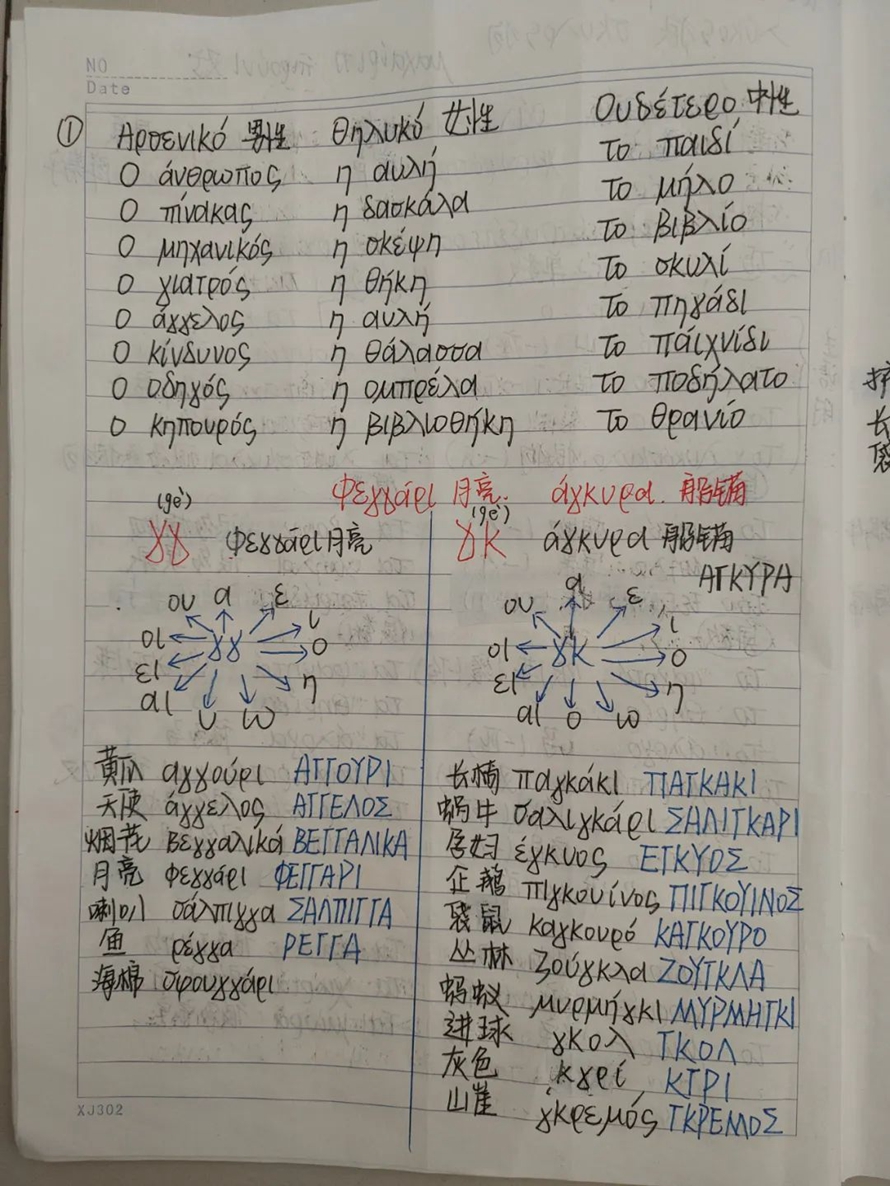 NO
Date
① Αρσενικό 男性 Θηλυκό 女性 Ουδέτερο 中性
Ο άνθρωπος η αυλή το παιδί
Ο πίνακας η δασκάλα το μήλο
Ο μηχανικός η σκέψη το βιβλίο
Ο γιατρός η θήκη το σκυλί
Ο άγγελος η αυλή το πηγάδι
Ο κίνδυνος η θάλασσα το πάιχνίδι
Ο οδηγός η ομπρέλα το ποδήλατο
Ο κηπουρός η βιβλιοθήκη το θρανίο
φεγγάρι 月亮. άγκυρα. 船锚
(gè) (gè)
γγ φεγγάρι 月亮 γκ άγκυρα 船锚
ΑΓΚΥΡΑ
ου α ε ι ο η ω υ αι ει οι γγ
ου α ε ι ο η ω ο αι ει οι γκ
黄瓜 αγγούρι ΑΓΓΟΥΡΙ
天使 άγγελος ΑΓΓΕΛΟΣ
烟花 βεγγαλικά ΒΕΓΓΑΛΙΚΑ
月亮 φεγγάρι ΦΕΓΓΑΡΙ
喇叭 σάλπιγγα ΣΑΛΠΙΓΓΑ
鱼 ρέγγα ΡΕΓΓΑ
海棉 σφουγγάρι
长椅 παγκάκι ΠΑΓΚΑΚΙ
蜗牛 σαλιγκάρι ΣΑΛΙΓΚΑΡΙ
孕妇 έγκυος ΕΓΚΥΟΣ
企鹅 πιγκουίνος ΠΙΓΚΟΥΙΝΟΣ
袋鼠 καγκουρό ΚΑΓΚΟΥΡΟ
丛林 ζούγκλα ΖΟΥΓΚΛΑ
蚂蚁 μυρμήγκι ΜΥΡΜΗΓΚΙ
进球 γκολ ΓΚΟΛ
灰色 κγρί ΚΓΡΙ
山崖 γκρεμός ΓΚΡΕΜΟΣ
XJ302